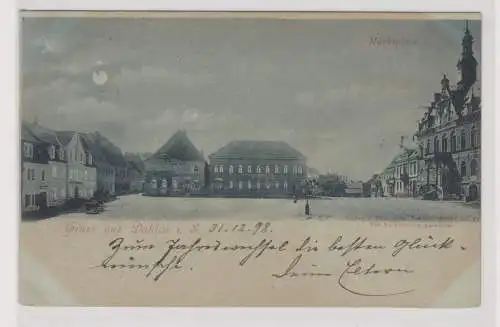 Marktplatz
Gruss aus Döhlen i. S. 31.12.98.
Zum Jahreswechsel die besten Glück-
wünsche
Deine Eltern